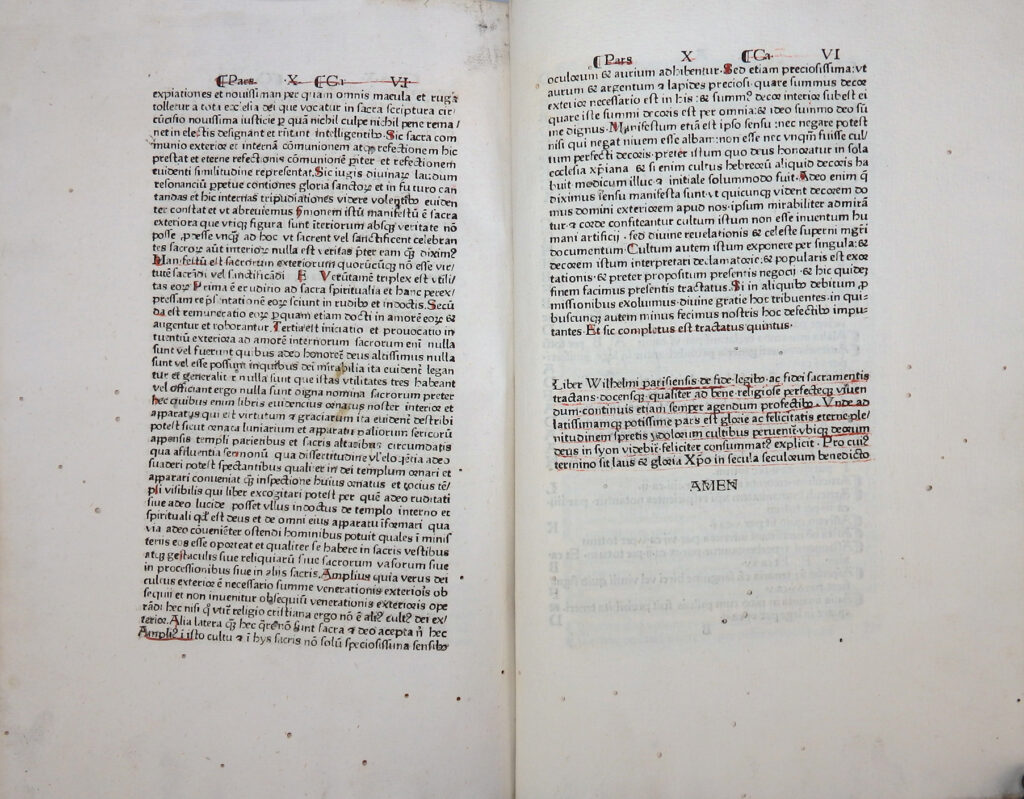 ¶Pars X ¶Ca VI
expiationes et nouissiman per quam omnis macula et ruga
tolletur a tota ecclesia dei que vocatur in sacra scriptura cir/
cūcisio nouissima iusticie p quā nichil culpe nichil pene rema/
net in electis designant et rñtunt intelligentibꝯ. Sic sacra com
munio exterioꝛ et internā cōmunionem atqꝫ refectionem hic
prestat et eterne refectionis cōmunionē pīter et refectionem
euidenti similitudine representat. Sic iugis diuinaꝝ laudum
resonanciū ppetue contiones gloria sanctoꝝ et in futuro can
tandas et hic internas tripudiationes videre volentibꝯ euiden
ter constat et vt abreuiemus sꝫmonem istū manifestū ē sacra
exteriora que vtiqꝫ figura sunt iteriorum absqꝫ veritate nō
posse, pꝛesse vnqꝫ ad hoc vt sacrent vel sanctificent celebran
tes sacroꝝ aūt interioꝝ nulla est veritas pīter eam qꝫ diximꝰ
Manifestū est sacrorum exteriorum quorūcūqꝫ nō esse vir/
tutē sacrādi vel sanctificādi E Veꝛūtamē triplex est vtili/
tas eoꝝ Prima ē eruditio ad sacra spiritualia et hanc peꝛex/
pressam repsentationē eoꝝ sciunt in rudibꝯ et indoctis. Secū
da est remuneratio eoꝝ p quam etiam docti in amorē eoꝝ ⁊
augentur et roborantur. Tertia est iniciatio et prouocatio in
tuentiū exteriora ad amorē internorum sacrorum eni nulla
sunt vel fuerunt quibus adeo honorē deus altissimus nulla
sunt vel esse possunt inquibus dei mirabilia ita euidēt legan
tur et generalitꝛ nulla sunt que istas vtilitates tres habeant
vel officiant ergo nulla sunt digna nomina sacrorum preter
hec quibus enim libris euidencius oꝛnatus noster interioꝛ et
apparatꝯ qui est virtutum et graciarum ita euidēt describi
potest sicut oꝛnata luniarium et apparatu palioꝛum sericoꝛū
appensis templi parietibus et sacris altaribus circumdatis
qua affluentia sermonū qua dissertitudine vl eloqētia adeo
suaderi potest spectantibus qualiter in dei templum oꝛnari et
apparari conueniat qꝫ inspectione huius oꝛnatus et tocius tē/
pli visibilis qui liber excogitari potest per quē adeo ruditati
siue adeo lucide posset vllus indoctus de templo interno et
spirituali qd est deus et de omni eius apparatu iformari qua
via adeo coueniēter ostendi hominibus potuit quales i minis
teriis eos esse oporteat et qualiter se habere in sacris vestibus
atqꝫ gestaculis siue reliquiarū siue sacrorum vasorum siue
in processionibus siue in aliis sacris. Amplius quia verus dei
cultus exterioꝛ ē necessario summe venerationis exterioꝛis ob
sequii et non inuenitur obsequiū venerationis exterioꝛis ope
rādi hec nisi qꝫ vtiꝛ religio cristiana ergo nō ē aliꝰ cultꝰ dei ex/
terioꝛ. Alia latera qꝫ hec qꝛenō sint sacra ⁊ deo acepta ñ hec
Ampliꝰ i isto cultu ⁊ i hys sacris nō solū speciosissima sensibꝯ
¶Pars X ¶Ca VI
oculoꝛum ⁊ aurium adhibentur. Sed etiam preciosissima: vt
aurum ⁊ argentum ⁊ lapides preciosi quare summus decoꝛ
exterioꝛ necessario est in his: ⁊ summꝰ decoꝛ interioꝛ subest ei
quare iste summi decoꝛis est per omnia: ⁊ ideo summo deo sū
me dignus. Manifestum etiā est ipso sensu: nec negare potest
nisi qui negat niuem esse albam: non esse nec vnqꝫ fuisse cul/
tum perfecti decoꝛis: preter istum quo deus honoratur in sola
ecclesia xpiana ⁊ si enim cultus hebreoꝛū aliquid decoꝛis ha
buit medicum illuc ⁊ initiale solummodo fuit. Adeo enim qꝫ
diximus sensu manifesta sunt: vt quicunqꝫ vident decoꝛem do
mus domini exterioꝛem apud nos: ipsum mirabiliter admirā
tur ⁊ coꝛde confiteantur cultum istum non esse inuentum hu
mani artificij. sed diuine reuelationis ⁊ celeste superni mgr̄i
documentum. Cultum autem istum exponere per singula: ⁊
decoꝛem istum interpretari declamatoꝛie: ⁊ popularis est exoꝛ
tationis: ⁊ preter propositum presentis negocij. ⁊ hic quidem
finem facimus presentis tractatus. Si in aliquibꝯ debitum p
missionibus exoluimus diuine gratie hoc tribuentes in qui/
buscunqꝫ autem minus fecimus nostris hoc defectibꝯ impu/
tantes. Et sic completus est tractatus quintus.
Liber Wilhelmi parisiensis de fide legibꝯ ac fidei sacramentis
tractans. docensqꝫ qualiter ad bene religiose perfecteqꝫ viuen
dum. continuis etiam semper agendum profectibꝯ. Vnde ad
latissimamqꝫ potissime pars est gloꝛie ac felicitatis eterne ple/
nitudinem spretis ydoloꝛum cultibus peruenīꝛ: vbiqꝫ deoꝛum
deus in syon videbitꝛ feliciter consummatꝰ explicit. Pro cuiꝰ
termino sit laus ⁊ gloꝛia Xpo in secula seculoꝛum benedicto
AMEN